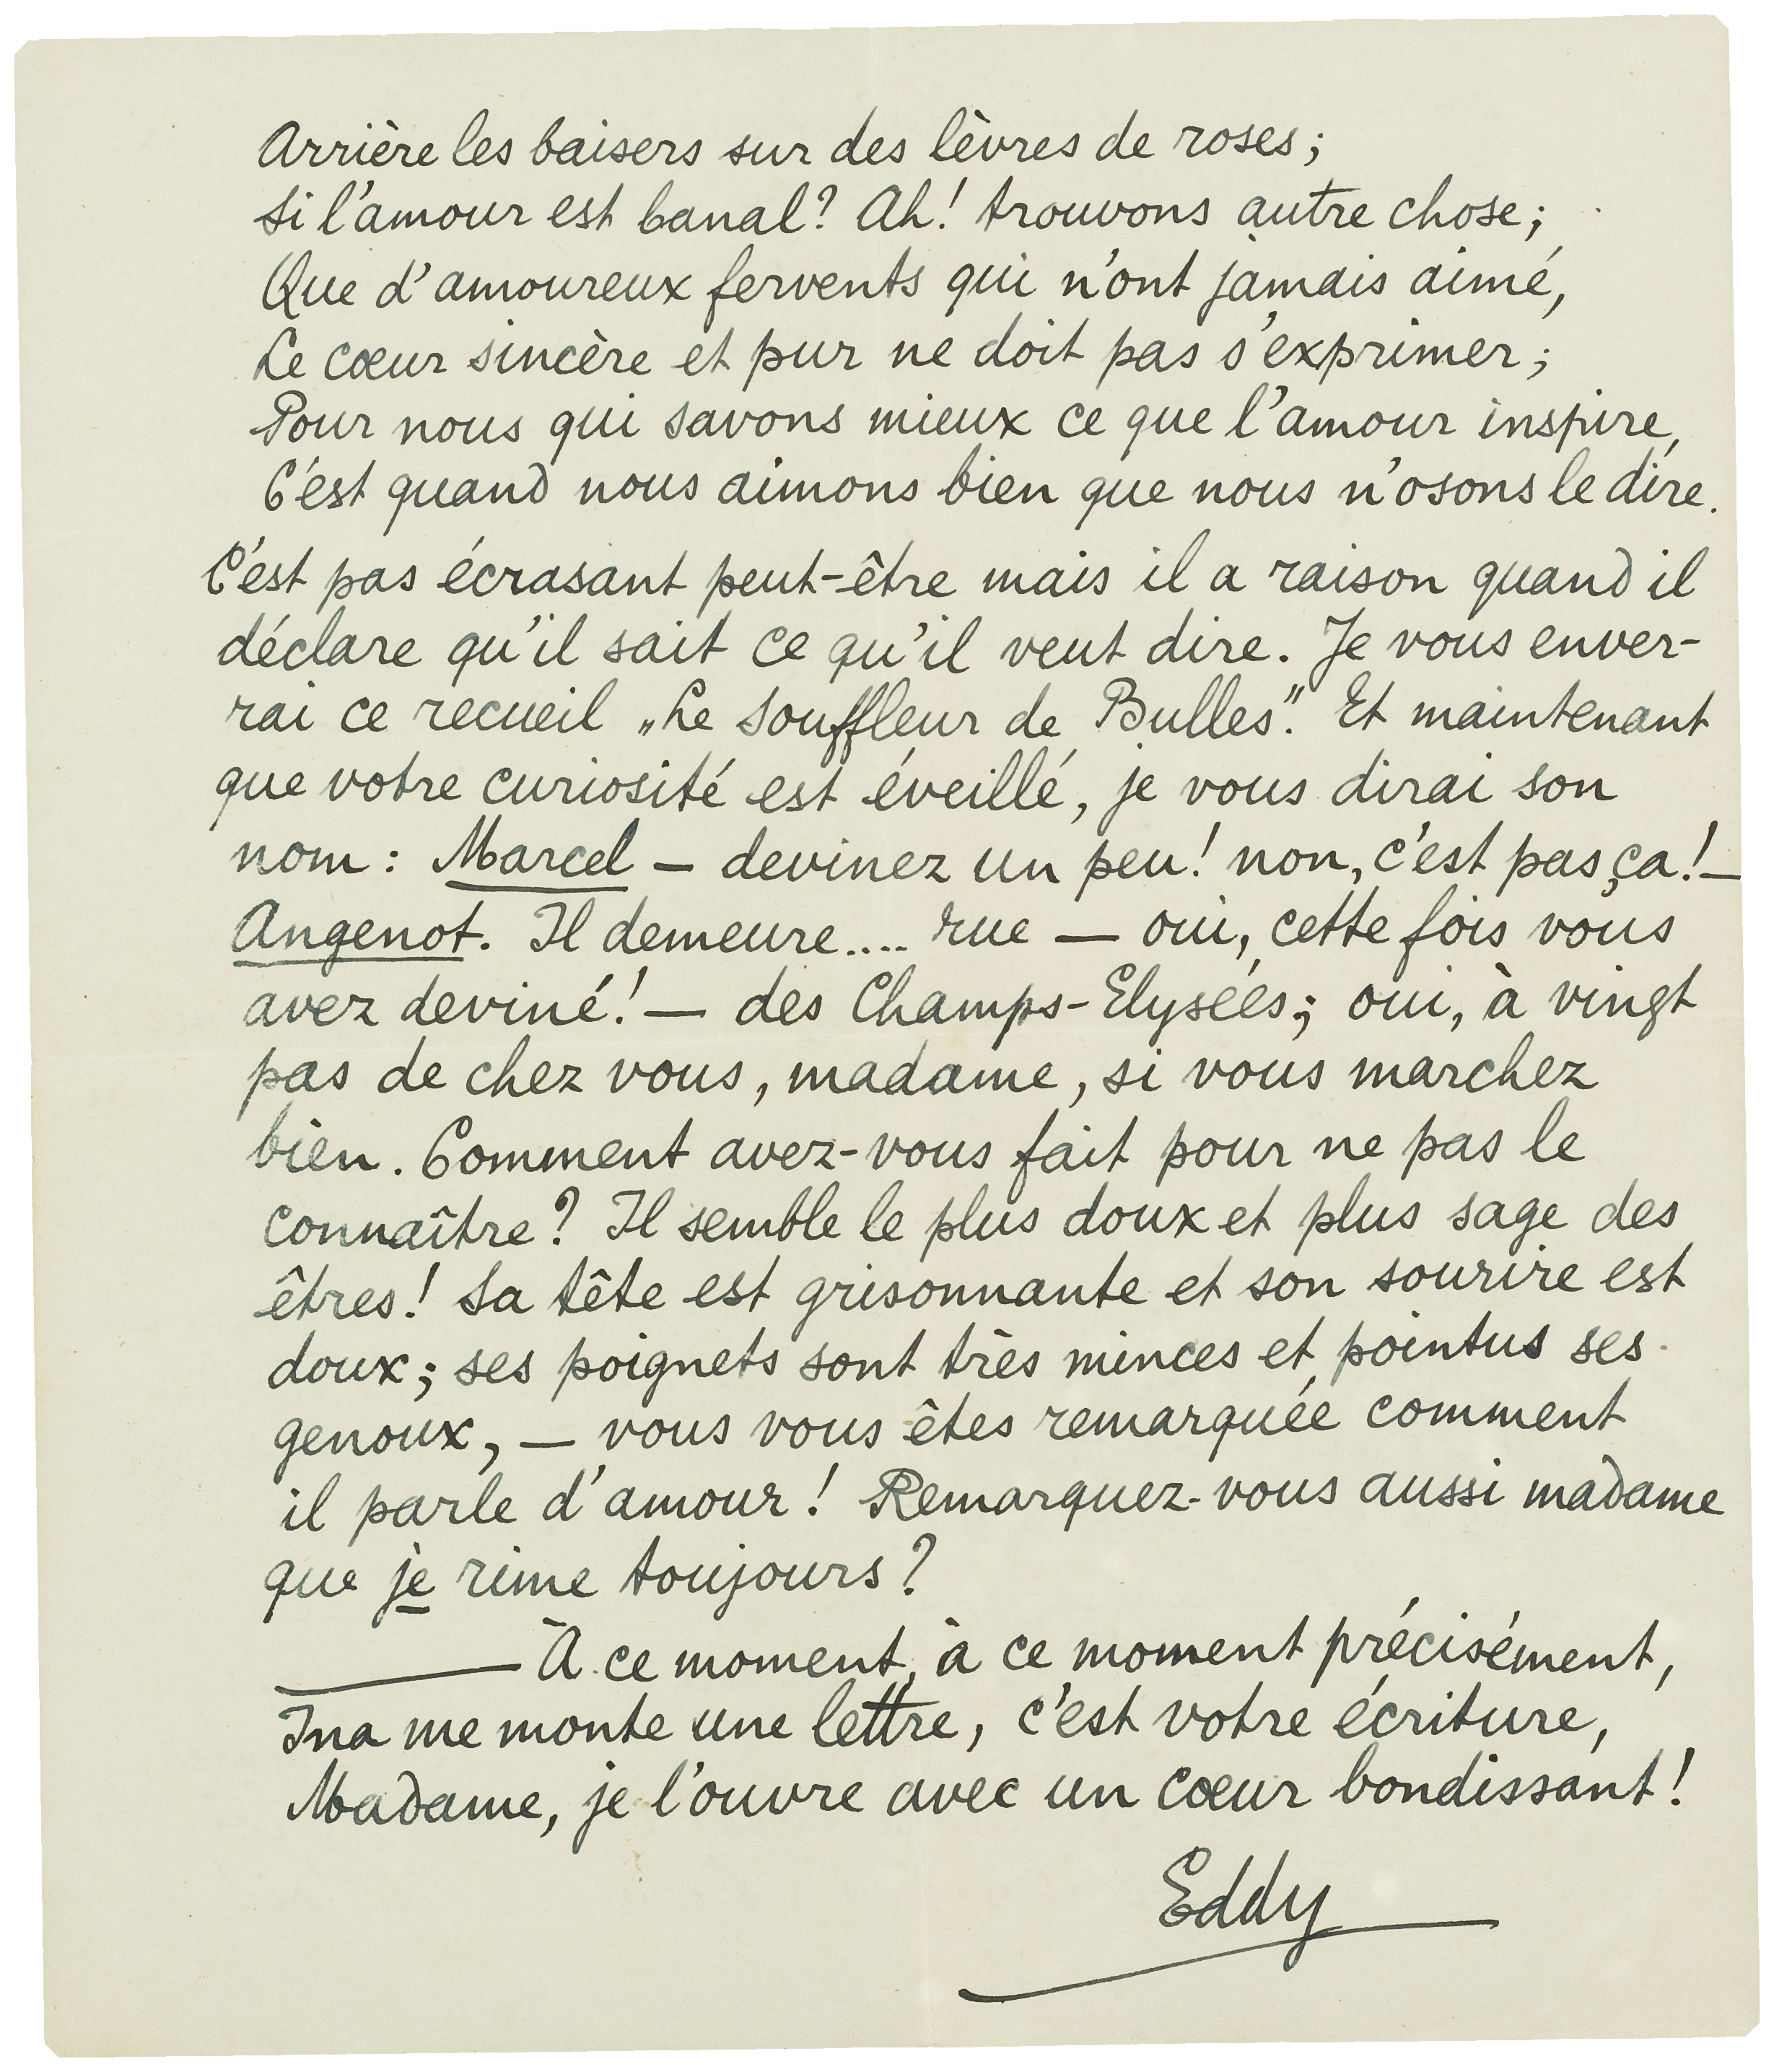 Arrière les baisers sur des lèvres de roses;
Si l'amour est banal? Ah! trouvons autre chose;
Que d'amoureux fervents qui n'ont jamais aimé,
Le cœur sincère et pur ne doit pas s'exprimer;
Pour nous qui savons mieux ce que l'amour inspire,
C'est quand nous aimons bien que nous n'osons le dire.
C'est pas écrasant peut-être mais il a raison quand il
déclare qu'il sait ce qu'il veut dire. Je vous enver-
rai ce recueil „Le Souffleur de Bulles". Et maintenant
que votre curiosité est éveillé, je vous dirai son
nom: Marcel — devinez un peu! non, c'est pas ça! —
Angenot. Il demeure.... rue — oui, cette fois vous
avez deviné! — des Champs-Elysées; oui, à vingt
pas de chez vous, madame, si vous marchez
bien. Comment avez-vous fait pour ne pas le
connaître? Il semble le plus doux et plus sage des
êtres! Sa tête est grisonnante et son sourire est
doux; ses poignets sont très minces et pointus ses
genoux, — vous vous êtes remarquée comment
il parle d'amour! Remarquez-vous aussi madame
que je rime toujours?
— À ce moment, à ce moment précisément,
Ina me monte une lettre, c'est votre écriture,
Madame, je l'ouvre avec un cœur bondissant!
Eddy